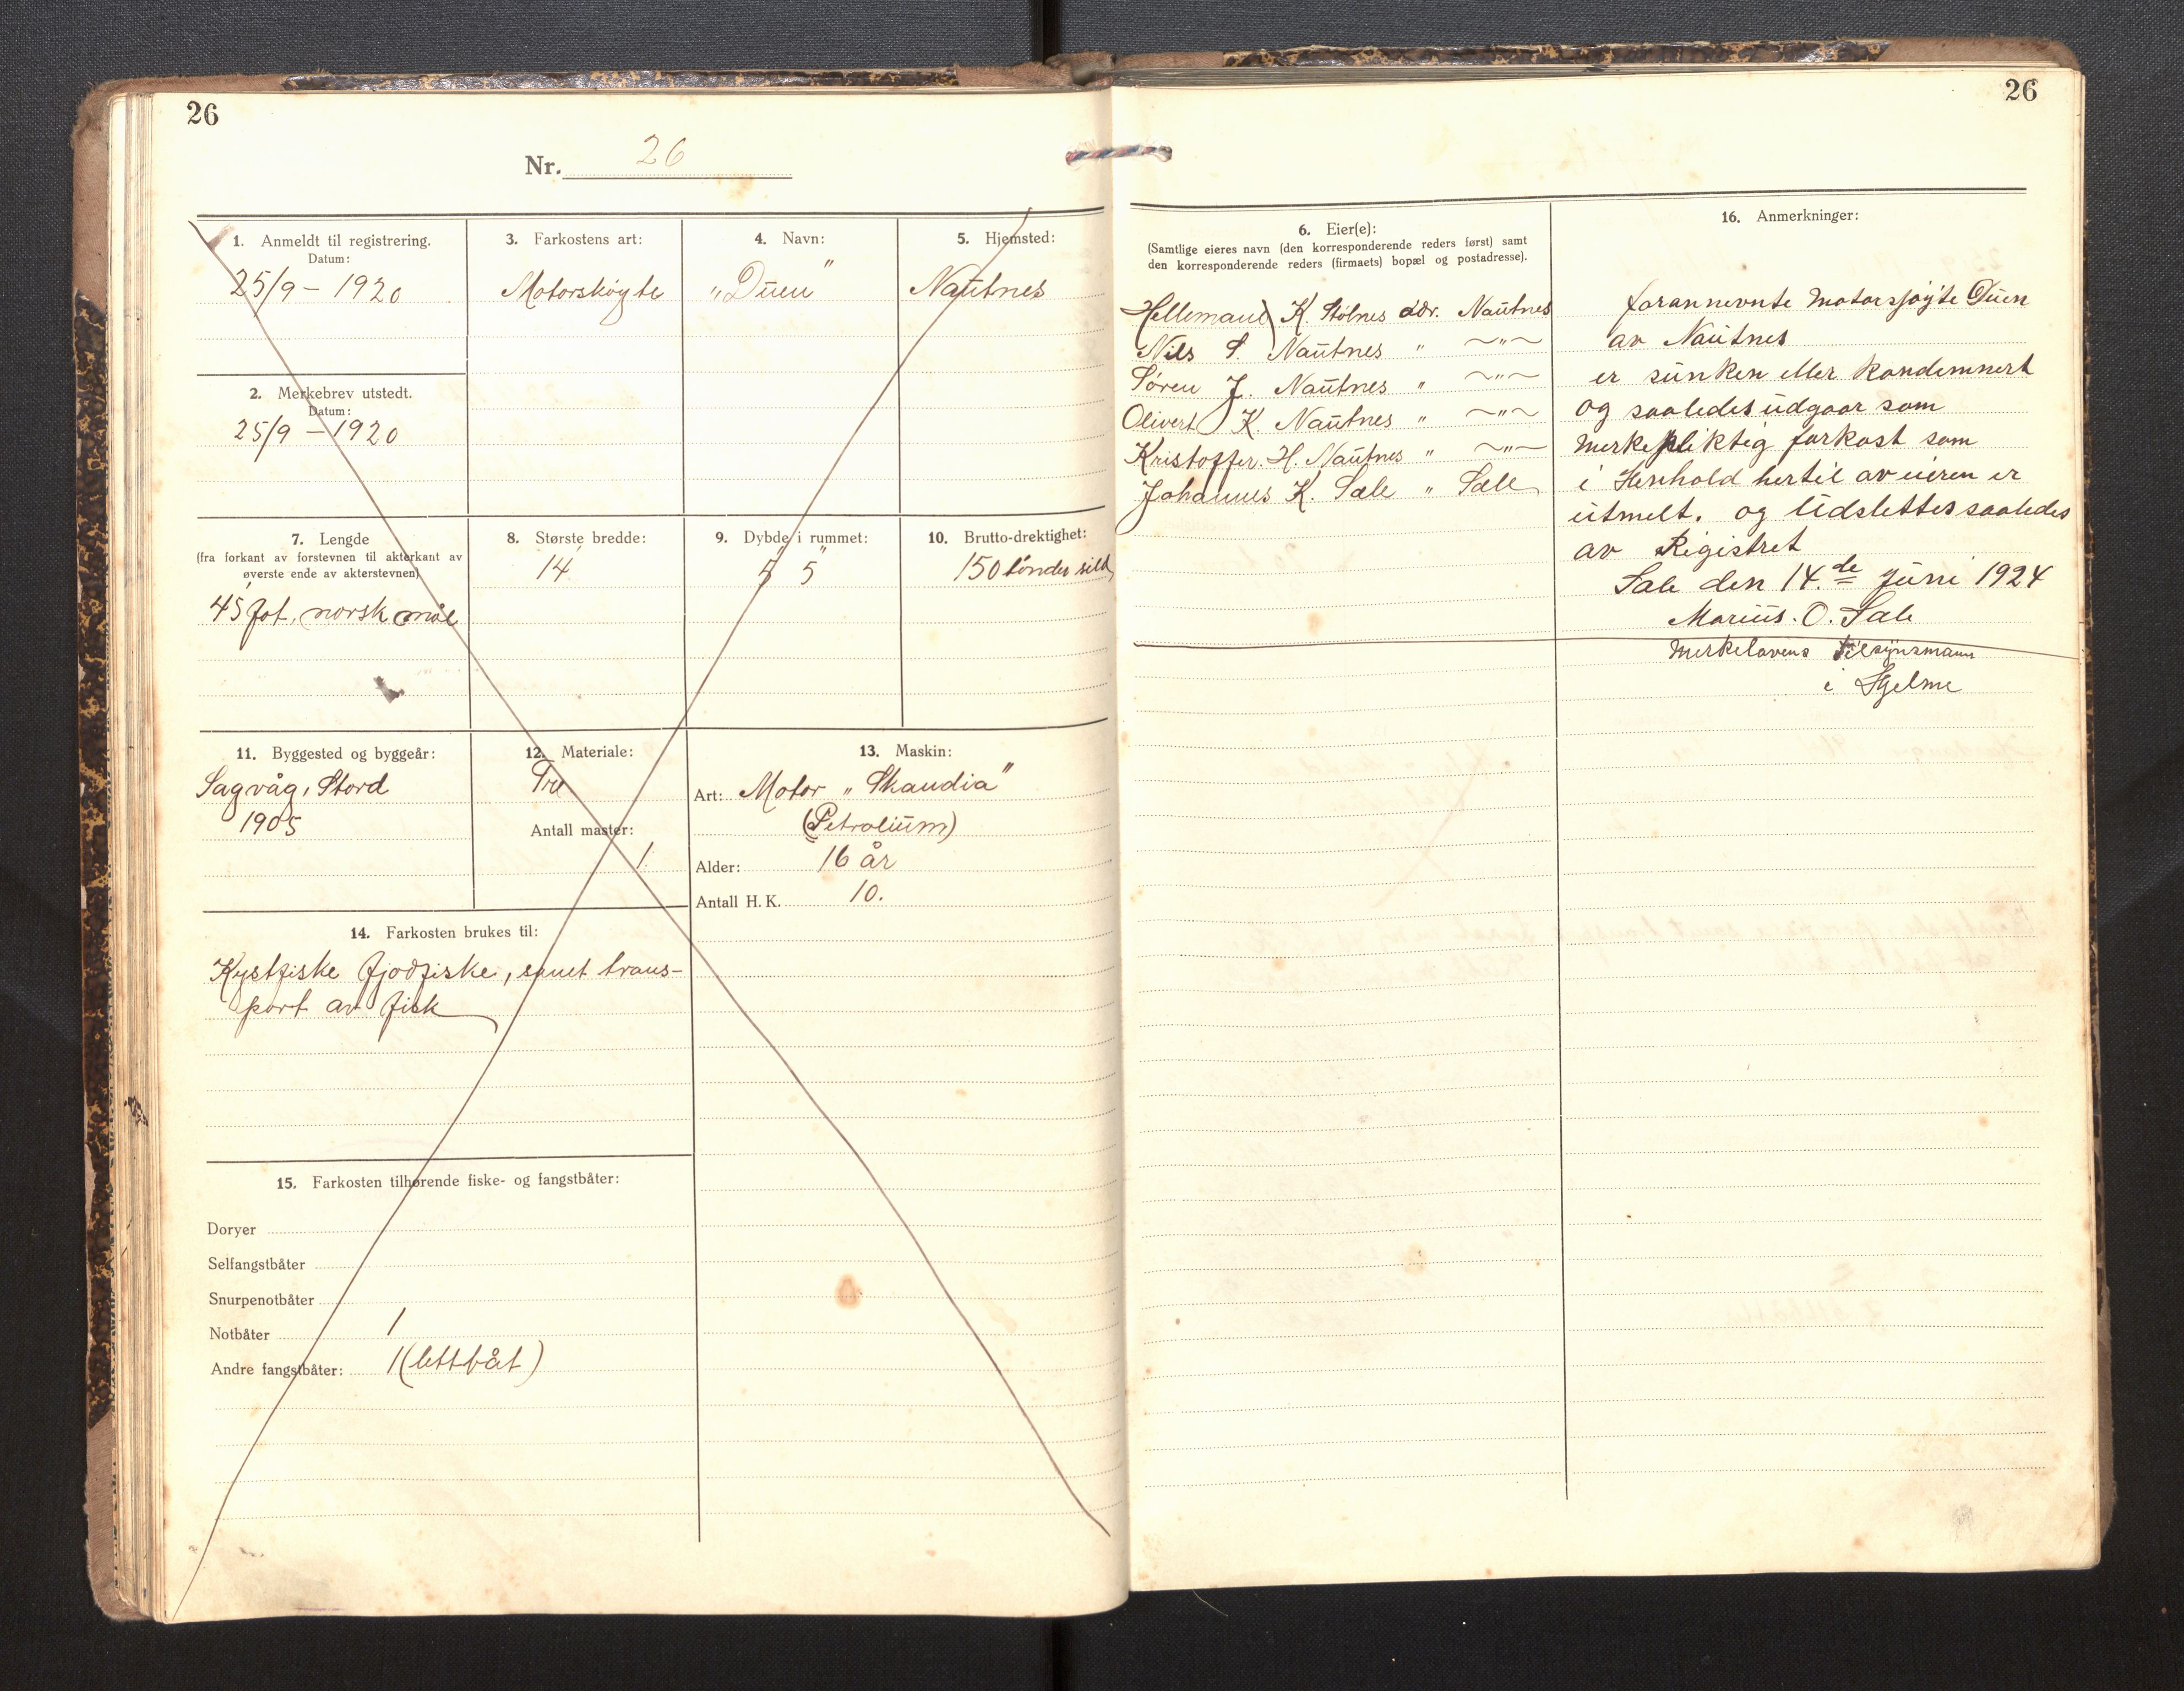 26
Nr. 26
1. Anmeldt til registrering.
Datum:
25/9 - 1920
2. Merkebrev utstedt.
Datum:
25/9 - 1920
3. Farkostens art:
Motorskøyte
4. Navn:
"Duen"
5. Hjemsted:
Nautnes
7. Lengde
(fra forkant av forstevnen til akterkant av
øverste ende av akterstevnen)
45 fot, norsk mål
8. Største bredde:
14'
9. Dybde i rummet:
5' 5"
10. Brutto-drektighet:
150 tønder sild
11. Byggested og byggeår:
Sagvåg, Stord
1905
12. Materiale:
Tre
Antall master:
1.
13. Maskin:
Art: Motor "Skandia"
(Petrolium)
Alder: 16 år
Antall H. K. 10.
14. Farkosten brukes til:
Kystfiske fjodfiske, samt trans-
port av fisk
15. Farkosten tilhørende fiske- og fangstbåter:
Doryer
Selfangstbåter
Snurpenotbåter
Notbåter 1
Andre fangstbåter: 1 (lettbåt)
26
6. Eier(e):
(Samtlige eieres navn (den korresponderende reders først) samt
den korresponderende reders (firmaets) bopæl og postadresse).
K. Stølnes adr. Nautnes
Nils S. Nautnes " ~"~
Søren J. Nautnes " ~"~
Olivert K. Nautnes " ~"~
Kristoffer. H. Nautnes " ~"~
Johannes K. Sæle " Sæle
16. Anmerkninger:
forannevnte Motorsjøyte Duen
av Nautnes
er sunken eller kondemnert
og saaledes udgaar som
Merkepliktig farkost som
i Henhold hertil av eieren er
utmelt. og Udslettes saaledes
av Registret
Sæle den 14.de Juni 1924
Marius. O. Sæle
Merkelovens tilsynsmann
i Hjelme